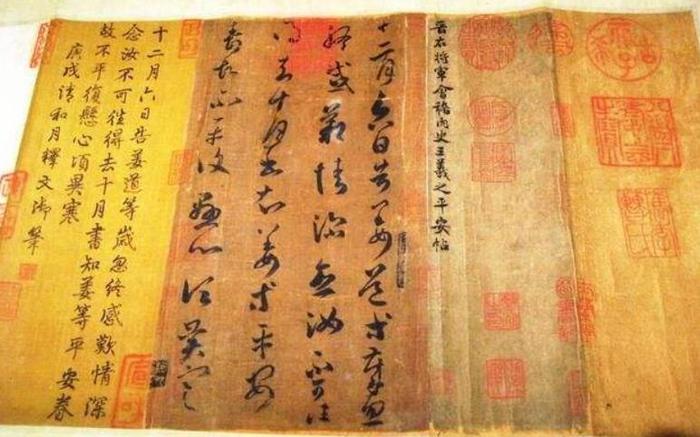 晉右將軍會稽內史王羲之平安帖
十二月六日告姜道等歲忽
終感歎情深念汝不可往
得去十月書知姜等平安
春故不平復懸心頃異寒
十二月六日告姜道等歲忽終感歎情深
念汝不可往得去十月書知姜等平安春
故不平復懸心頃異寒
庚戌清和月釋文御筆